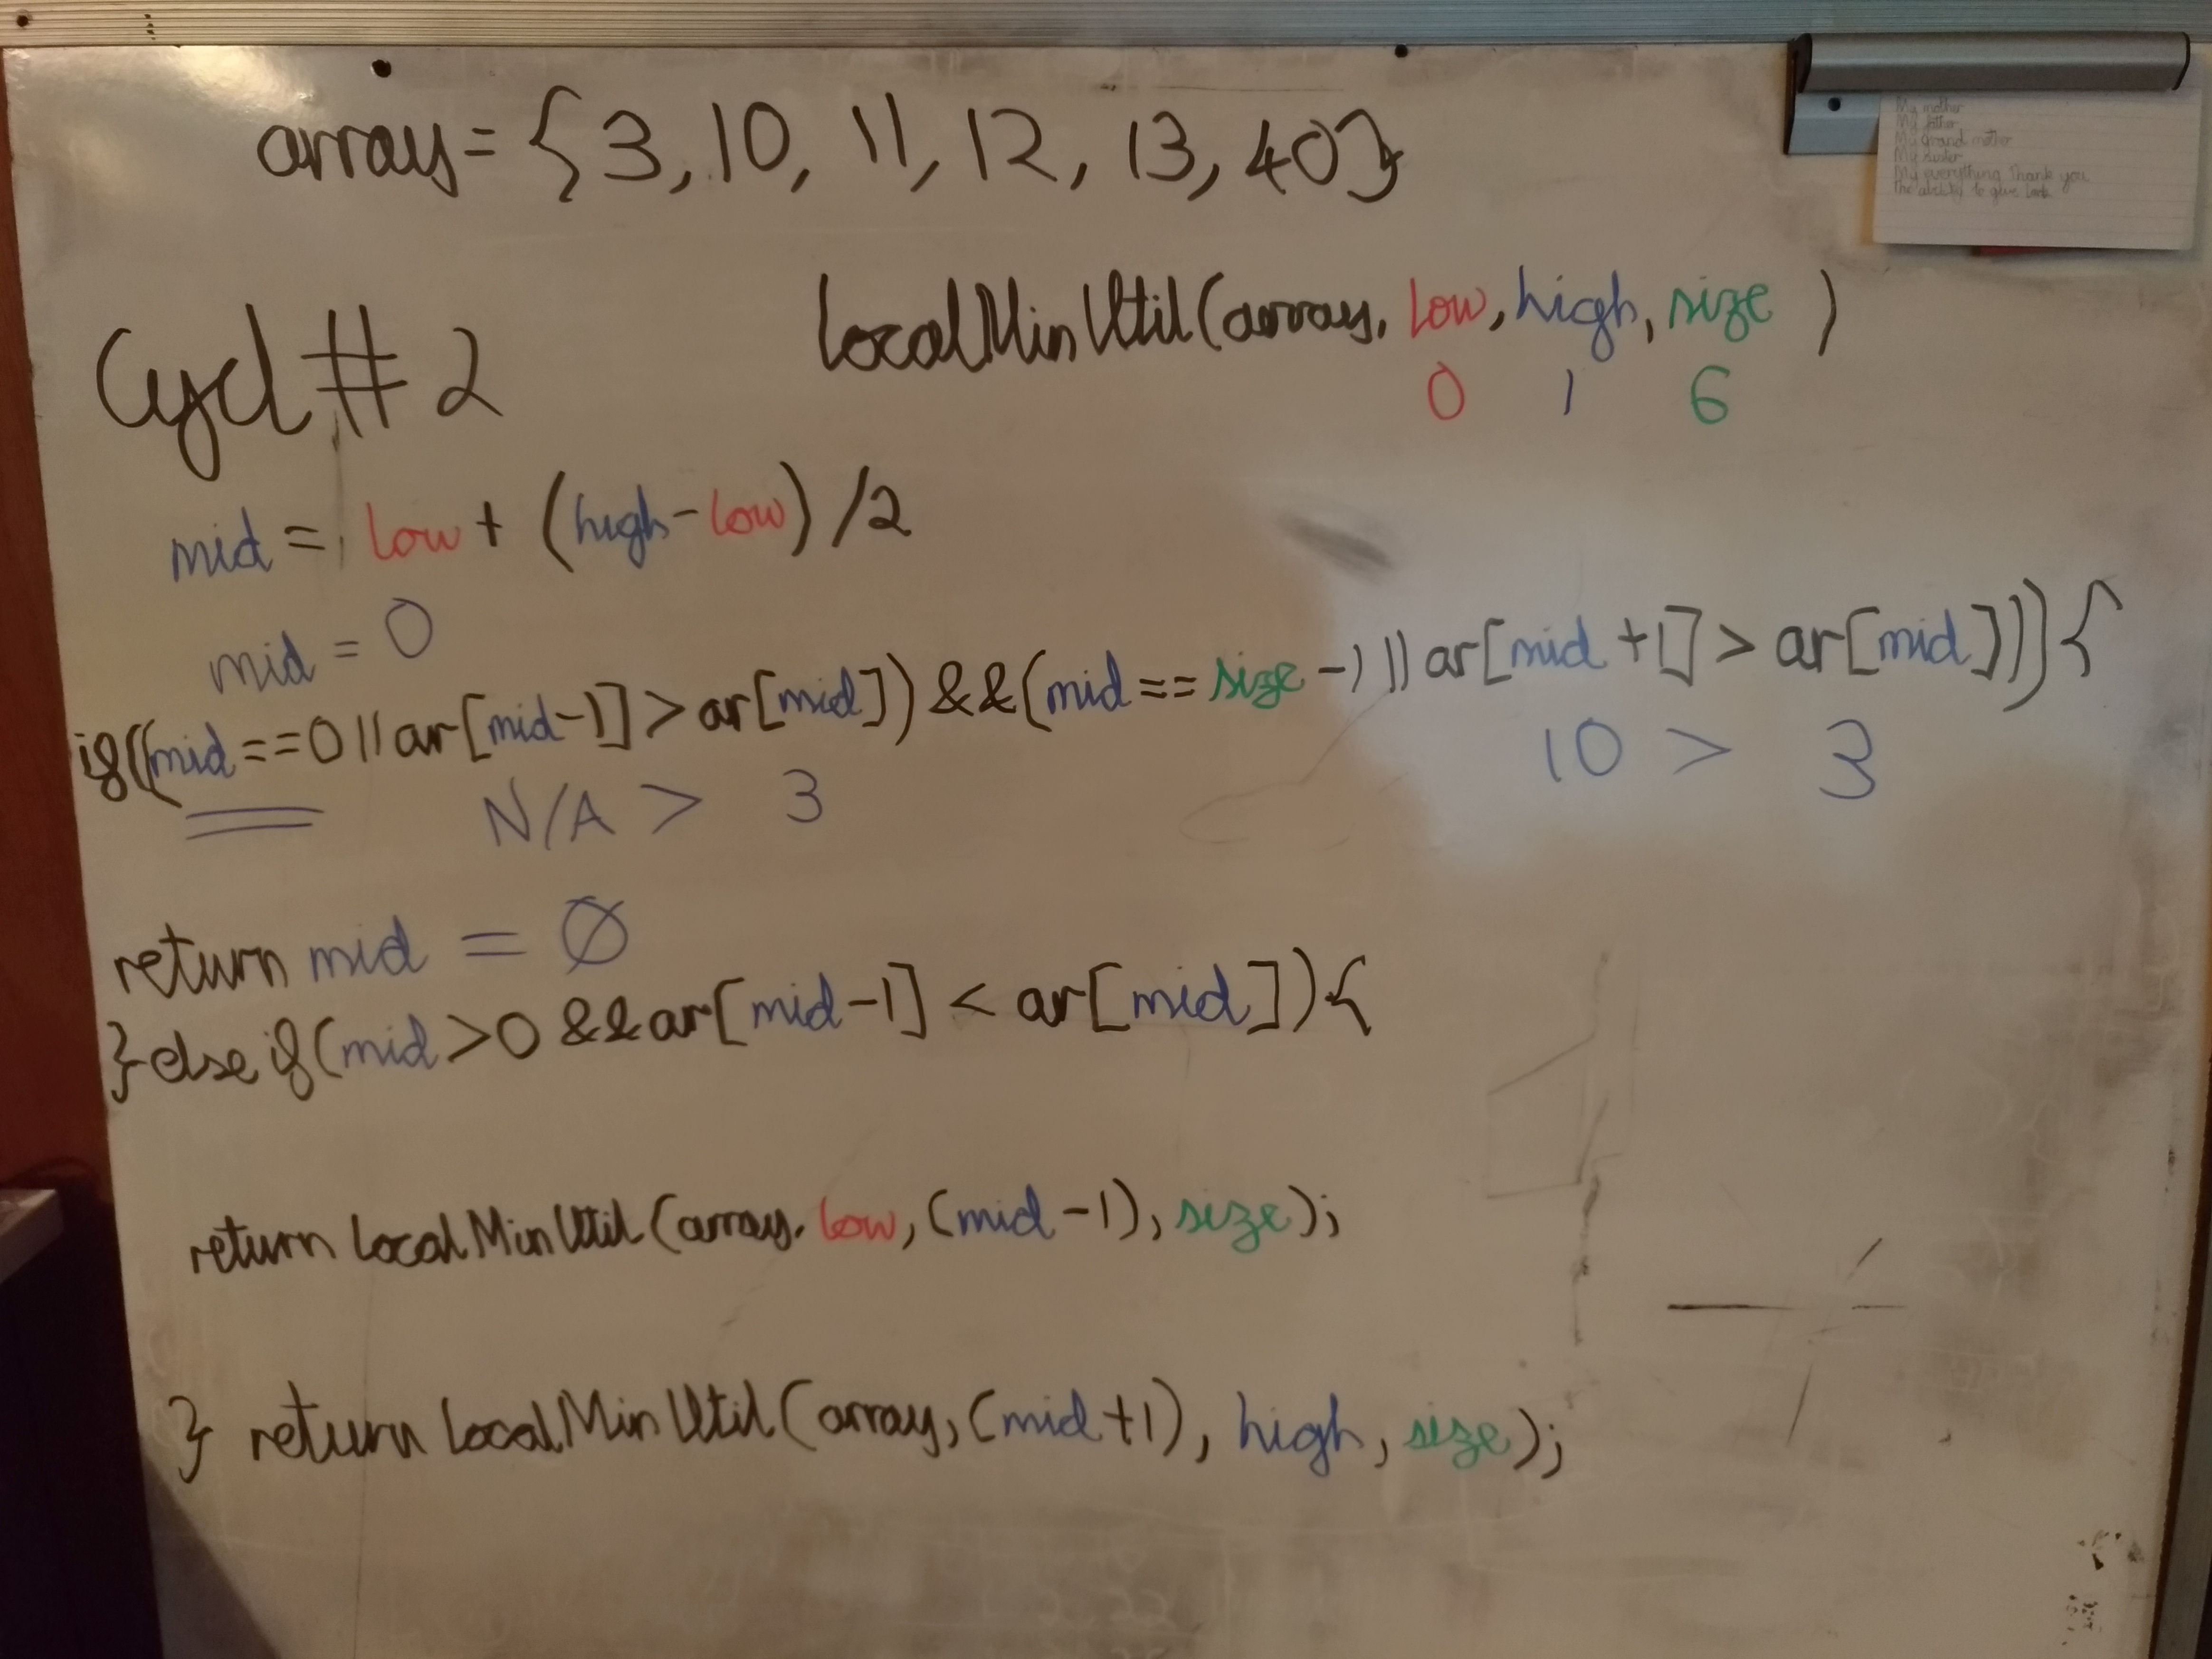 array = {3, 10, 11, 12, 13, 40}
My mother
My father
My grand mother
My sister
My everything Thank you
The ability to give
LocalMinUtil(array, low, high, size )
0 1 6
Cycl # 2
mid = low + (high - low) /2
mid = 0
if((mid == 0 || ar[mid-1] > ar[mid]) && (mid == size -1 || ar[mid +1] > ar[mid])){
N/A > 3 10 > 3
return mid = Ø
} else if(mid > 0 && ar[mid-1] < ar[mid]){
return LocalMinUtil(array, low, (mid-1), size);
} return LocalMinUtil(array, (mid+1), high, size);